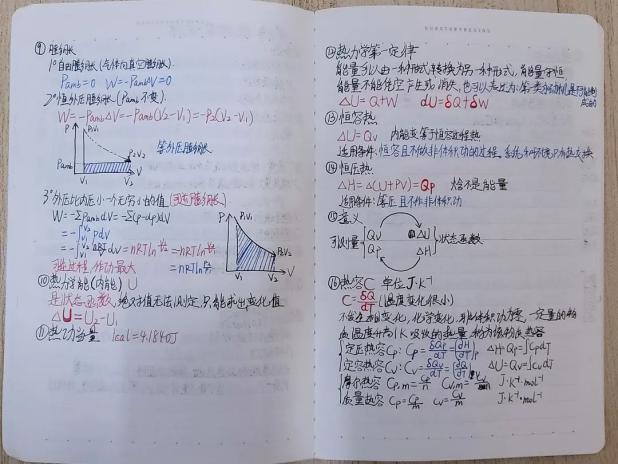 ⑨ 膨胀
1°自由膨胀(气体向真空膨胀)
Pamb=0 W=-PambΔV=0
2°恒外压膨胀(Pamb不变)
W=-PambΔV=-Pamb(V₂-V₁)=-P₂(V₂-V₁)
P P₁V₁
等外压膨胀
P₂V₂
Pamb
V₁ V₂ V
3°外压比内压小一个无穷小的值(可逆膨胀)
W=-ΣPambdV=-Σ(P-dp)dV
=-∫PdV
=nRTln
可逆过程,作功最大
P P₁V₁
P₂V₂
V₁ V₂ V
⑩热力学能(内能)U
是状态函数,绝对值无法测定,只能求出变化值
ΔU=U₂-U₁
⑪热功当量 1cal=4.1840J
⑫热力学第一定律
能量可以由一种形式转换为另一种形式,能量守恒
能量不能凭空产生或消失,也可以表述为:第一类永动机是不可能制成的
ΔU=Q+W dU=δQ+δW
⑬恒容热
ΔU=Qv 内能变等于恒容过程热
适用条件:恒容且不做非体积功的过程,系统和环境只有热交换
⑭恒压热
ΔH=Δ(U+PV)=Qp 焓不是能量
适用条件:等压且不作非体积功
⑮意义
可测量 Qv Qp ΔU ΔH 状态函数
⑯热容C 单位J·K⁻¹
C=δQ/dT (温度变化很小)
不发生相变化,化学变化,非体积功为零,一定量的物
质温度升高1K吸收的热量称为该物质热容
定压热容Cp: Cp=δQp/dT=(∂H/∂T)p ΔH=Qp=∫CpdT
定容热容Cv: Cv=δQv/dT ΔU=Qv=∫CvdT
摩尔热容 Cp,m=Cp/n Cv,m= J·K⁻¹·mol⁻¹
质量热容 Cp=Cp/m Cv=Cv/m J·K⁻¹·mol⁻¹